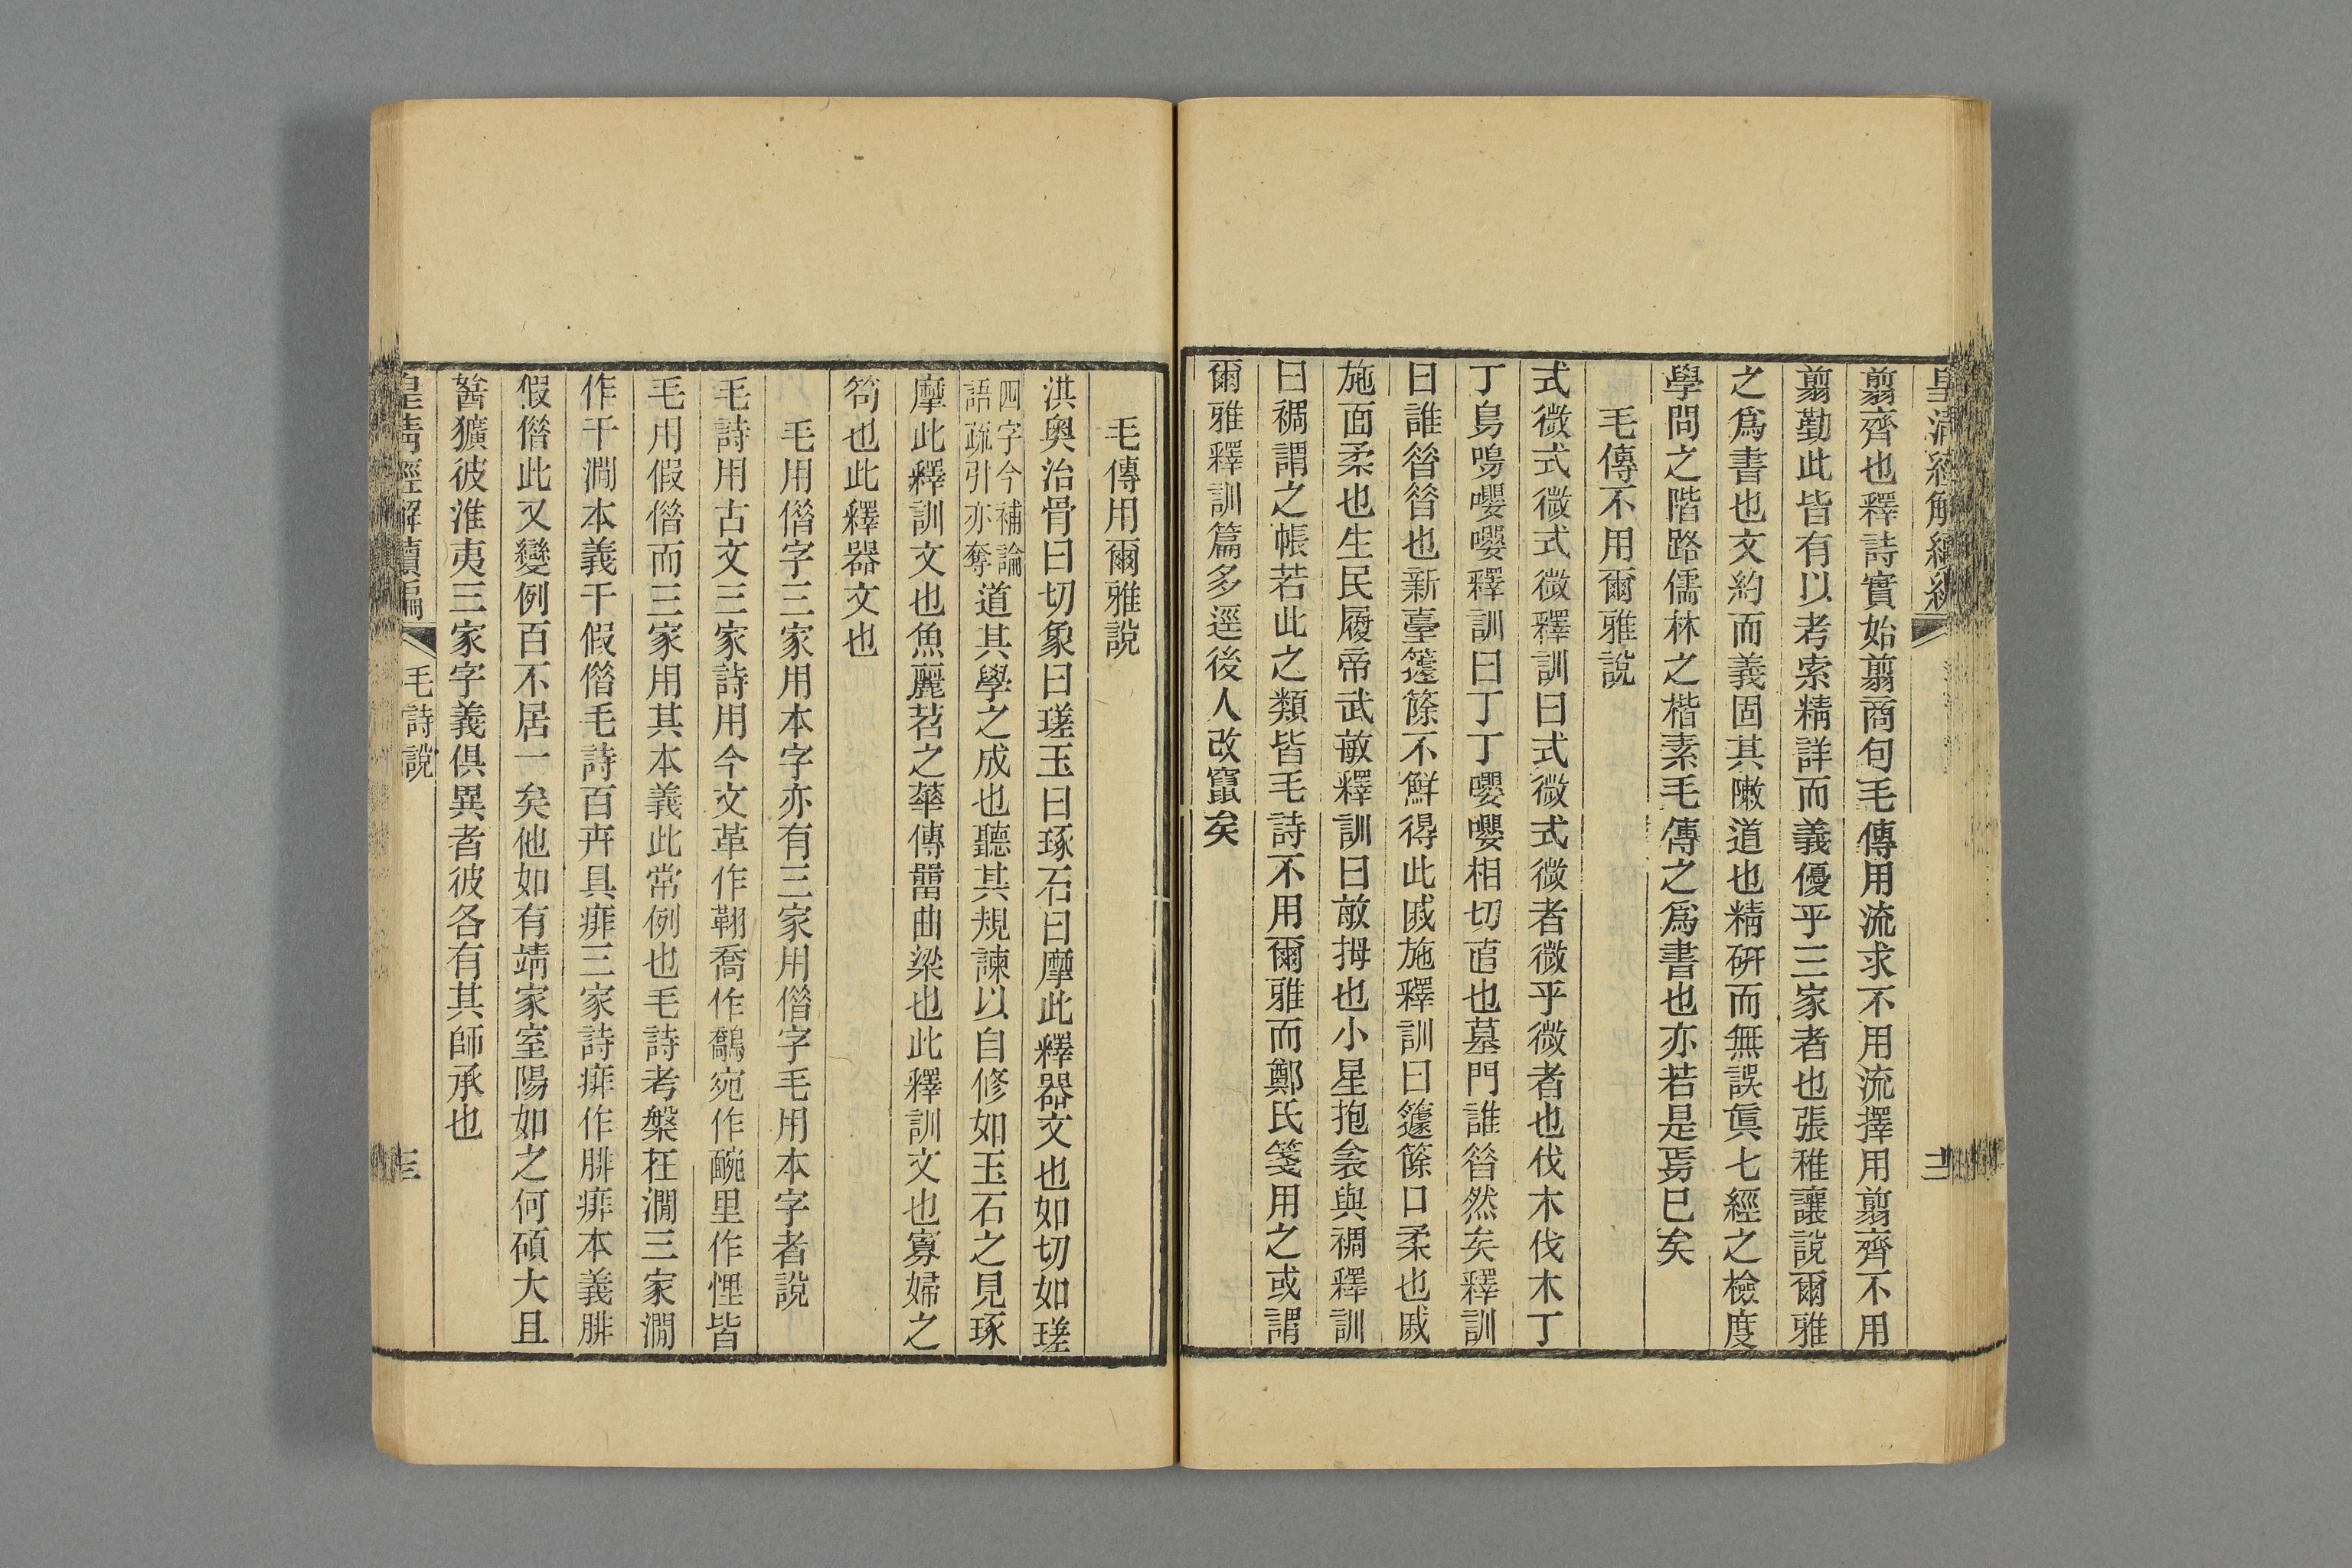 皇清經解續編
二
翦齊也釋詩實始翦商句毛傳用流求不用流擇用翦齊不用
翦勤此皆有以考索精詳而義優乎三家者也張稚讓說爾雅
之爲書也文約而義固其敶道也精硏而無誤眞七經之檢度
學問之階路儒林之楷素毛傳之爲書也亦若是焉巳矣
毛傳不用爾雅說
式微式微式微釋訓曰式微式微者微乎微者也伐木伐木丁
丁鳥鳴嚶嚶釋訓曰丁丁嚶嚶相切直也墓門誰昝然矣釋訓
曰誰昝昝也新臺籧篨不鮮得此戚施釋訓曰籧篨口柔也戚
施面柔也生民履帝武敏釋訓曰敏拇也小星抱衾與裯釋訓
曰裯謂之帳若此之類皆毛詩不用爾雅而鄭氏箋用之或謂
爾雅釋訓篇多逕後人改竄矣
毛傳用爾雅說
淇奧治骨曰切象曰瑳玉曰琢石曰摩此釋器文也如切如瑳
四字今補論
語疏引亦奪
道其學之成也聽其規諫以自修如玉石之見琢
摩此釋訓文也魚麗苕之華傳罶曲梁也此釋訓文也寡婦之
笱也此釋器文也
毛用僭字三家用本字亦有三家用僭字毛用本字者說
毛詩用古文三家詩用今文革作鞹喬作鷮宛作畹里作悝皆
毛用假僭而三家用其本義此常例也毛詩考槃在澗三家澗
作干澗本義干假僭毛詩百卉具痱三家詩痱作腓痱本義腓
假僭此又變例百不居一矣他如有靖家室陽如之何碩大且
䓆獷彼淮夷三家字義俱異者彼各有其師承也
皇清經解續編
毛詩說
三